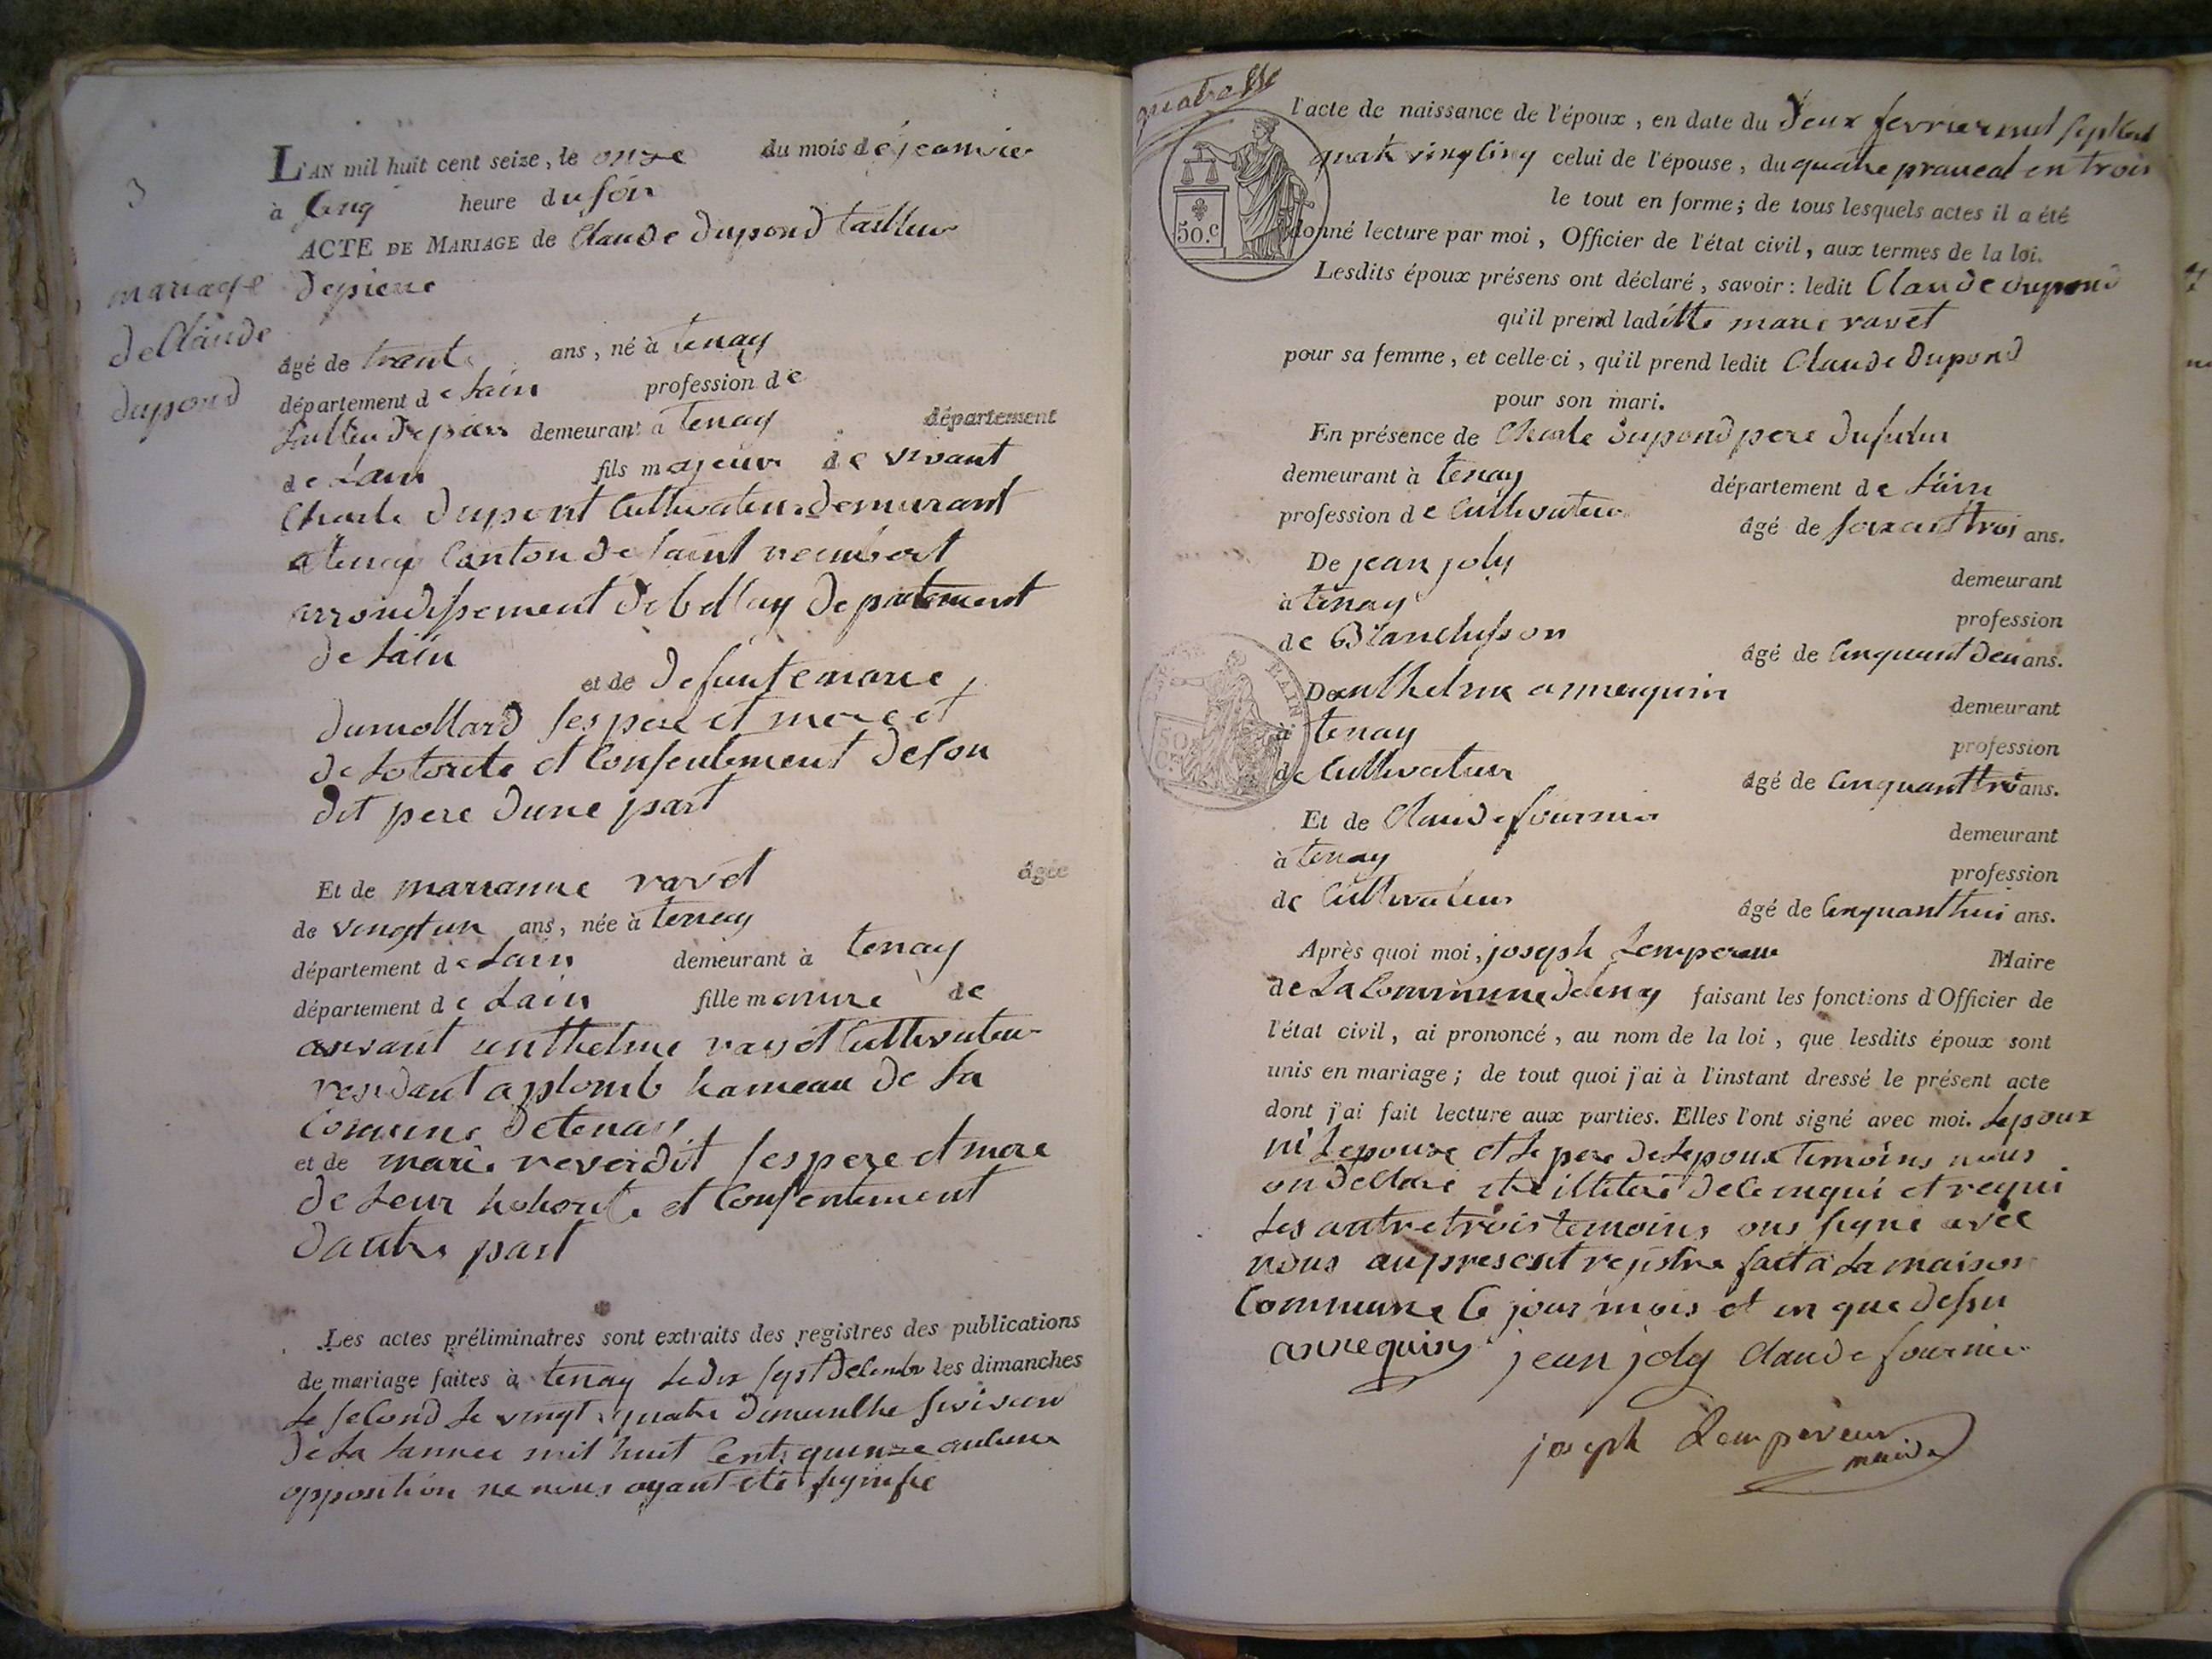 3
mariage
de Claude
dupond
L'AN mil huit cent seize, le onze du mois de jeanvier
à Cinq heure du soir
ACTE DE MARIAGE de Claude dupond tailleur
de piere
âgé de trente ans, né à tenay
département de Lain profession de
tailleu de piere demeurant à tenay département
de Lain fils majeur de vivant
Charle dupont Cultivateur demeurant
a tenay Canton de saint rembert
arrondissement de bellay departement
de Lain
et de defunte marie
dumollard ses pere et mere et
de Lotorite et Consentement de son
dit pere dune part
Et de marianne ravet âgée
de vingt un ans, née à tenay
département de Lain demeurant à tenay
département de Lain fille menure de
anthelme ravet Cultivateur
residant a plomb hameau de La
Comune de tenay
et de marie reverdit ses pere et mere
de Leur hotorite et Consentement
dautre part
Les actes préliminaires sont extraits des registres des publications
de mariage faites à tenay Le dix sept decembre les dimanches
Le second Le vingt quatre
de La Lannee mil huit Cents quinze aucune
opposition ne nous ayant été signifie
l'acte de naissance de l'époux, en date du deux fevrier mil sept cent
quatre vingt cinq celui de l'épouse, du quatre praireal en trois
le tout en forme; de tous lesquels actes il a été
50.c
donné lecture par moi, Officier de l'état civil, aux termes de la loi.
Lesdits époux présens ont déclaré, savoir: ledit Claude dupond
qu'il prend ladite marie ravet
pour sa femme, et celle-ci, qu'il prend ledit Claude dupond
pour son mari.
En présence de Charle dupond pere du futur
demeurant à tenay département de Lain
profession de Cultivateur âgé de soixante trois ans.
De jean joly demeurant
à tenay profession
de Blanchisson âgé de Cinquant deu ans.
De anthelme annequin demeurant
à tenay profession
50 C.
de Cultivateur âgé de Cinquant troi ans.
Et de Claude fournier demeurant
à tenay profession
de Cultivateur âgé de Cinquant hui ans.
Après quoi moi, joseph Lempereur Maire
de La Commune de tenay faisant les fonctions d'Officier de
l'état civil, ai prononcé, au nom de la loi, que lesdits époux sont
unis en mariage; de tout quoi j'ai à l'instant dressé le présent acte
dont j'ai fait lecture aux parties. Elles l'ont signé avec moi. Lepoux
ni Lepouse et Le pere de Lepoux temoins nous
on declare etre illitere de ce enqui et requi
Les autre trois temoins ons signe avec
nous au present registre fait a La maison
Commune le jour mois et en que dessu
annequin jean joly claude fournier
joseph Lempereur
maire